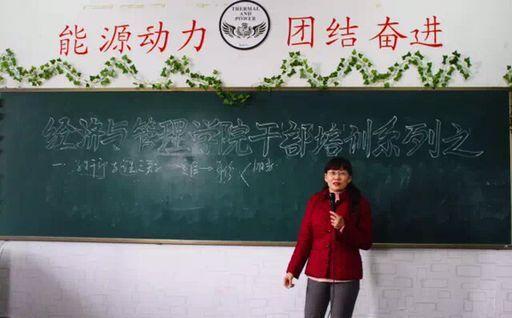 能源动力 团结奋进
THERMAL
AND
POWER
经济与管理学院干部培训系列之
一.